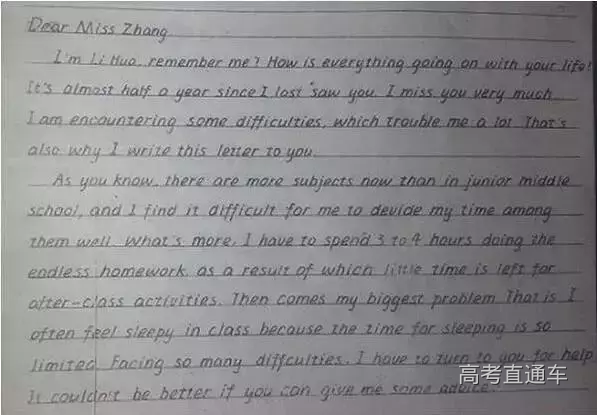 Dear Miss Zhang
I'm Li Hua, remember me? How is everything going on with your life?
It's almost half a year since I last saw you. I miss you very much
I am encountering some difficulties, which trouble me a lot That's
also why I write this letter to you.
As you know, there are more subjects now than in junior middle
school, and I find it difficult for me to devide my time among
them well What's more, I have to spend 3 to 4 hours doing the
endless homework, as a result of which little time is left for
after-class activities. Then comes my biggest problem That is I
often feel sleepy in class because the time for sleeping is so
limited Facing so many diffculties, I have to turn to you for help
It couldn't be better if you can give me some advice.
高考直通车